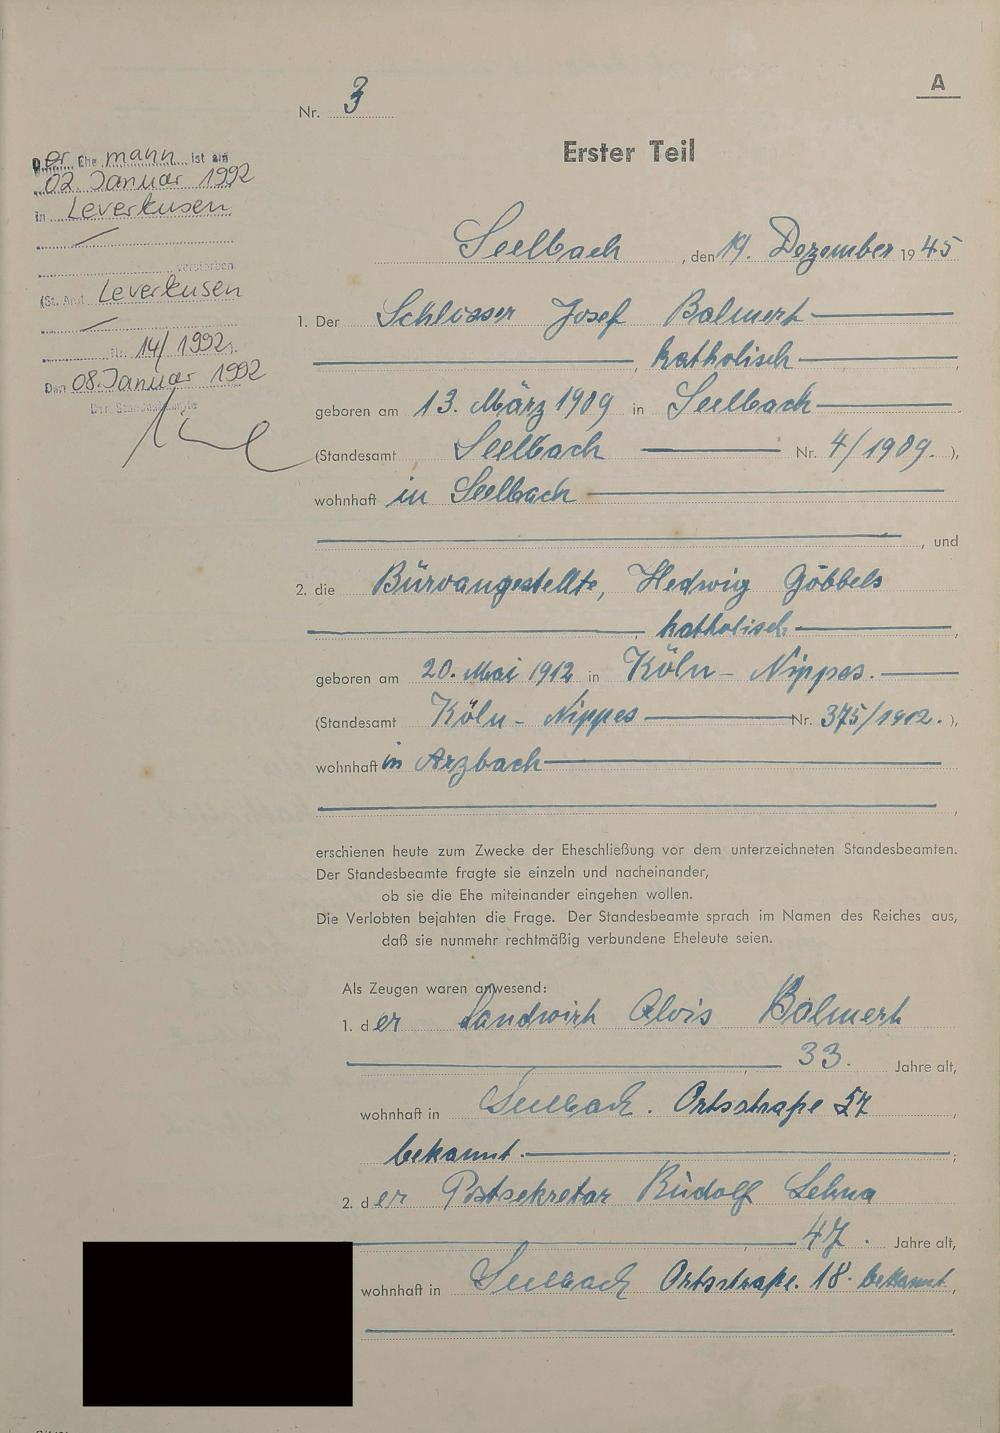 A
Nr. 3
Erster Teil
Der Ehe mann ist am
02. Januar 1992
in Leverkusen
verstorben
(St. Amt Leverkusen
Nr. 14/1992).
Den 08. Januar 1992
Der Standesbeamte
Seelbach, den 19. Dezember 1945
1. Der Schlosser Josef Balmert
, katholisch,
geboren am 13. März 1909 in Seelbach
(Standesamt Seelbach Nr. 4/1909.),
wohnhaft in Seelbach
, und
2. die Büroangestellte, Hedwig Göbbels
, katholisch,
geboren am 20. Mai 1912 in Köln-Nippes.
(Standesamt Köln-Nippes Nr. 375/1912.),
wohnhaft in Arzbach
,
erschienen heute zum Zwecke der Eheschließung vor dem unterzeichneten Standesbeamten.
Der Standesbeamte fragte sie einzeln und nacheinander,
ob sie die Ehe miteinander eingehen wollen.
Die Verlobten bejahten die Frage. Der Standesbeamte sprach im Namen des Reiches aus,
daß sie nunmehr rechtmäßig verbundene Eheleute seien.
Als Zeugen waren anwesend:
1. der Landwirt Alois Balmert
, 33. Jahre alt,
wohnhaft in Seelbach. Ortsstraße 57,
bekannt.;
2. der Postsekretar Rudolf
, 47. Jahre alt,
wohnhaft in Seelbach Ortsstraße. 18. bekannt,